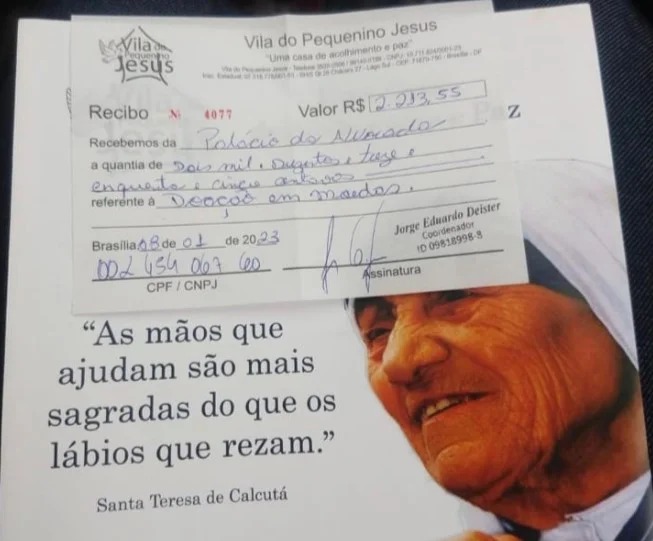 Vila do
Pequenino
Jesus
Vila do Pequenino Jesus
"Uma casa de acolhimento e paz"
Recibo Nº 4077 Valor R$ 2.213,55
Recebemos da Palácio da Alvorada
a quantia de Dois mil, duzentos e treze e
cinquenta e cinco centavos
referente à Doação em moedas.
Brasília 08 de 01 de 2023
CPF / CNPJ
Assinatura
Jorge Eduardo Deister
Coordenador
ID 09818998-8
Z
“As mãos que
ajudam são mais
sagradas do que os
lábios que rezam.”
Santa Teresa de Calcutá